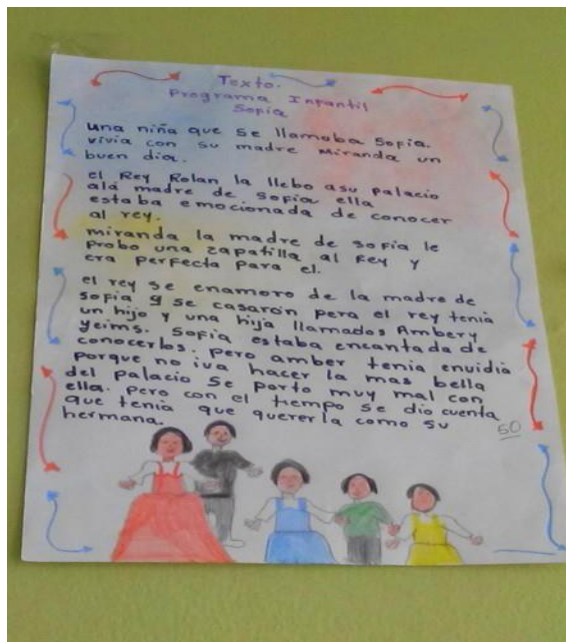 Texto.
Programa Infantil
Sofia
Una niña que se llamaba Sofia.
vivia con su madre Miranda un
buen dia.
el Rey Rolan la llebo asu palacio
ala madre de sofia ella
estaba emocionada de conocer
al rey.
miranda la madre de sofia le
probo una zapatilla al Rey y
era perfecta para el.
el rey se enamoro de la madre de
sofia y se casarón pero el rey tenia
un hijo y una hija llamados Ambery
yeims. Sofia estaba encantada de
conocerlos. pero amber tenia envidia
porque no iva hacer la mas bella
del palacio se porto muy mal con
ella. pero con el tiempo se dio cuenta
que tenia que quererla como su
hermana.
50